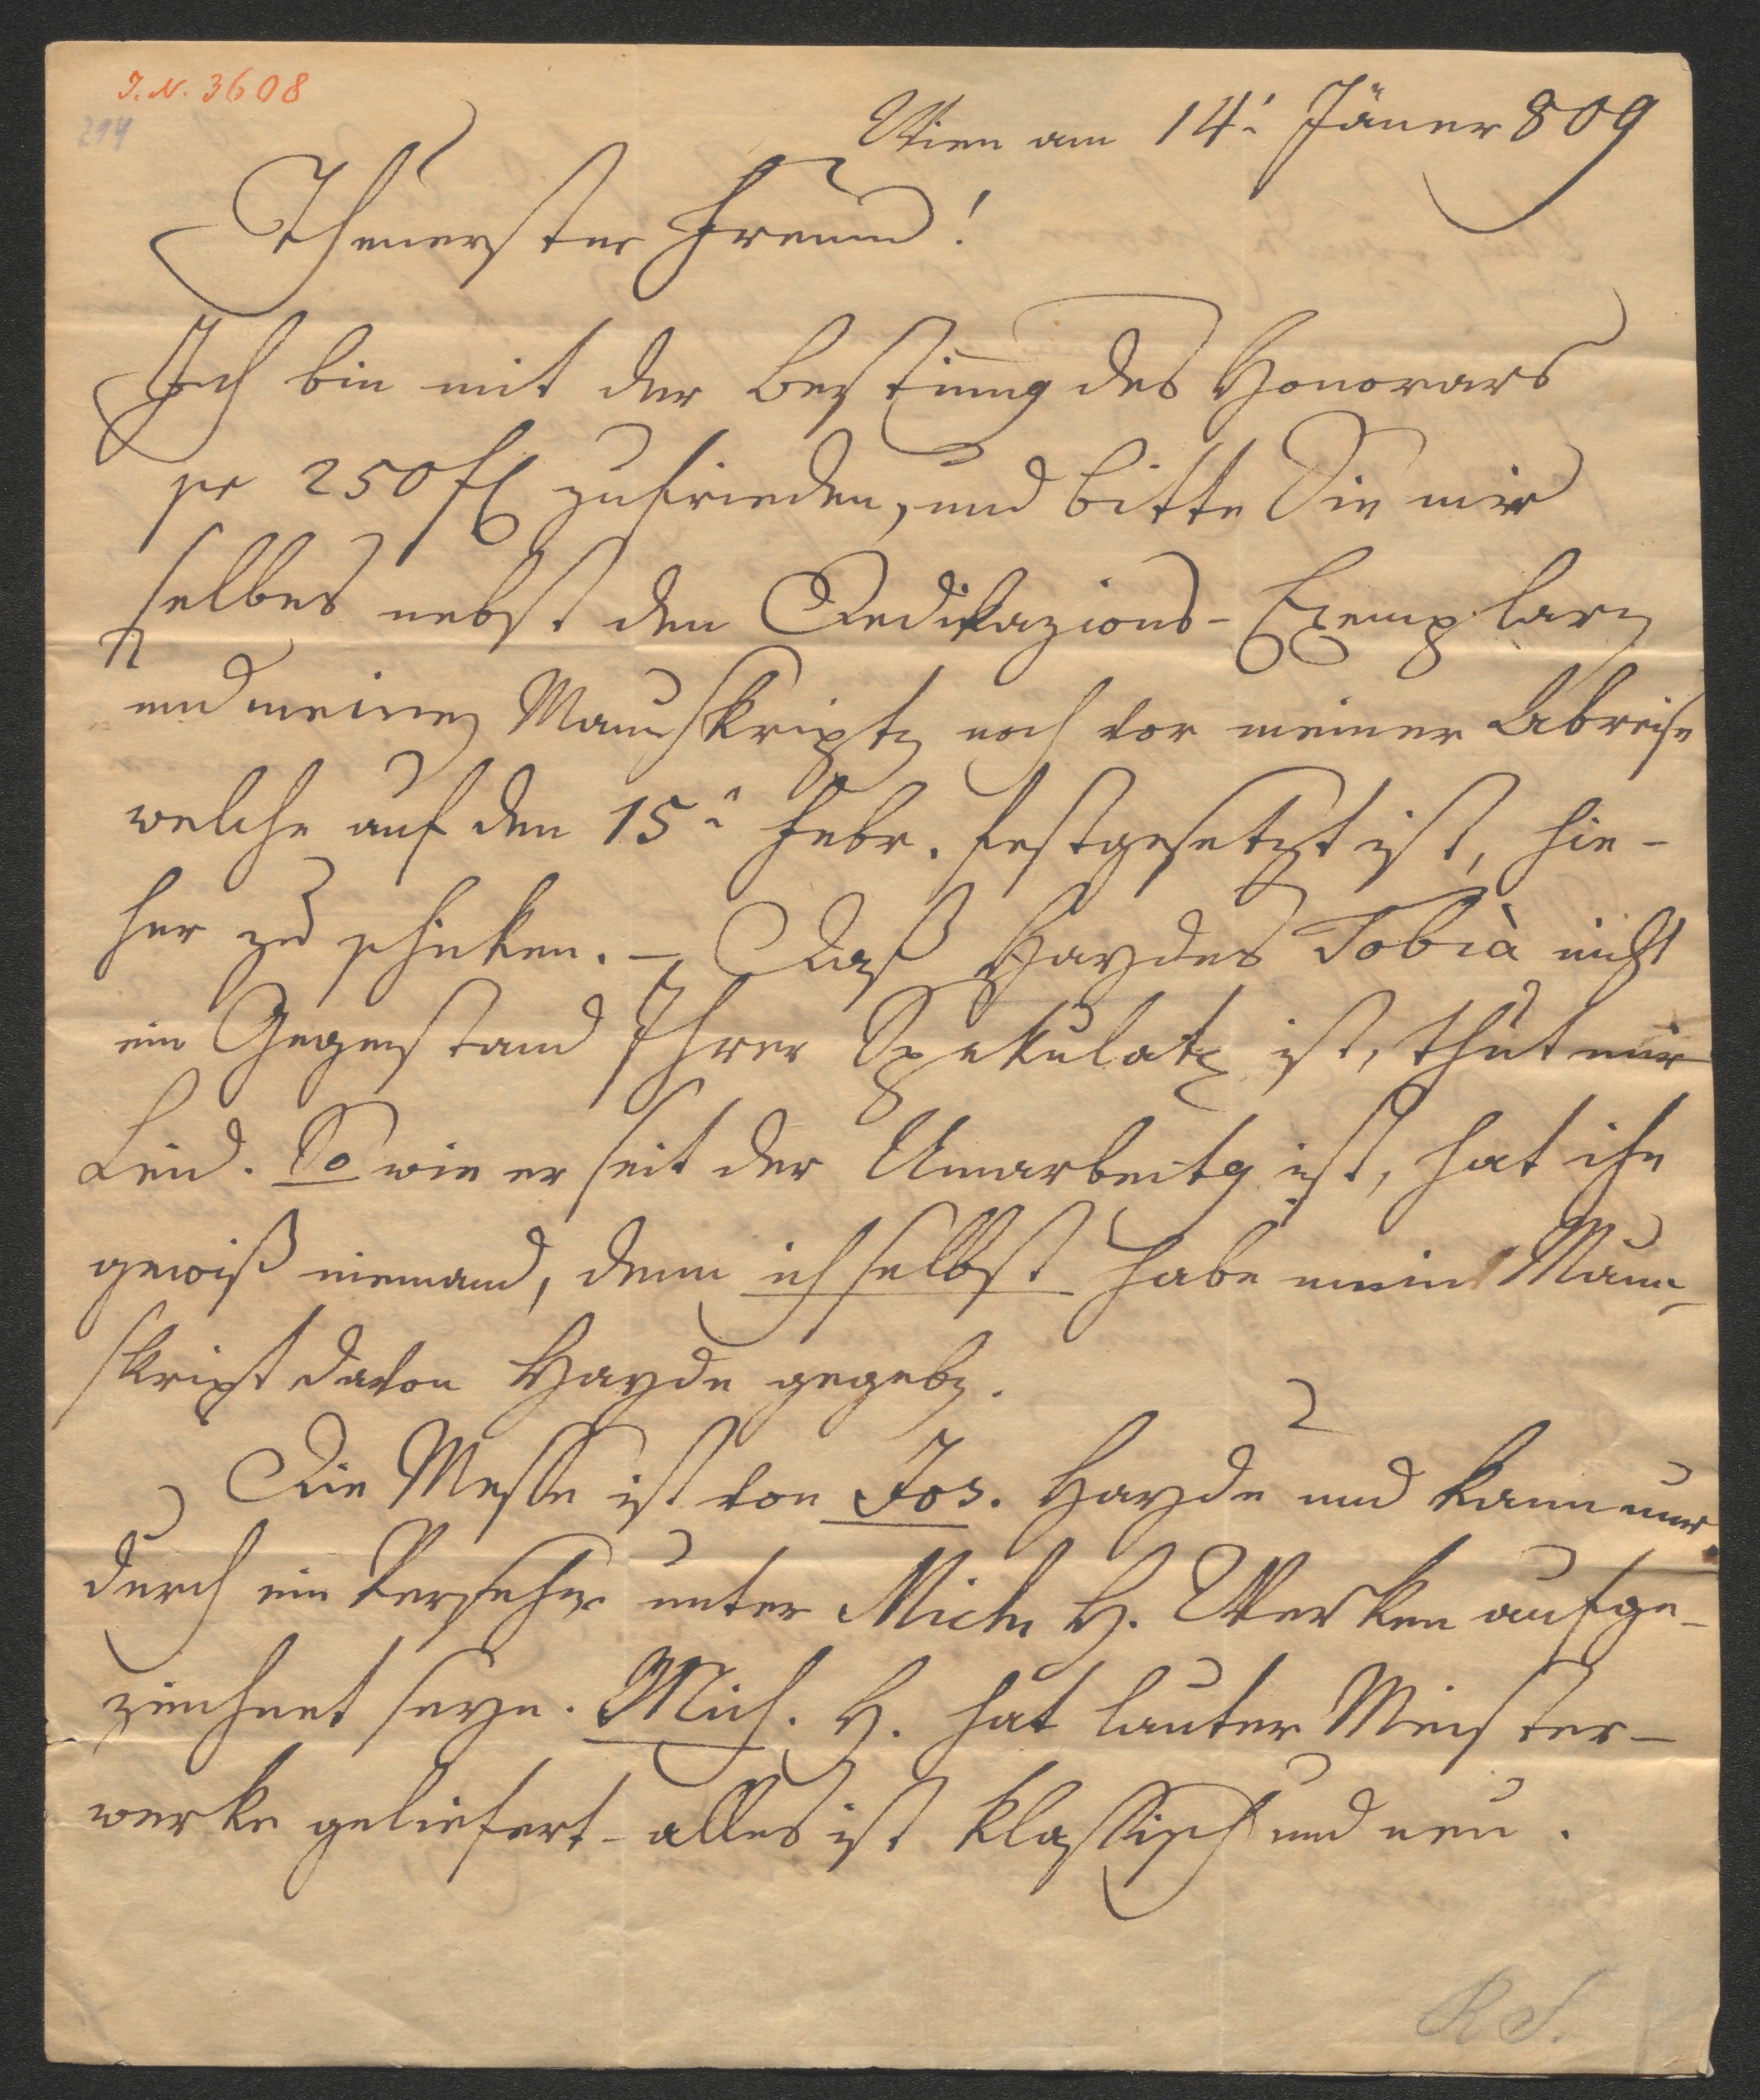 J. N. 3608
294
Wien am 14: Jäner 809
Theuerster Freund!
Ich bin mit der Bestim̄ung des Honorars
pr 250 fl zufrieden, und bitte Sie mir
selbes nebst den Dedikazions-Exemplaren
und meinen Manuskripten noch vor meiner Abreise
welche auf den 15: Febr. festgesetzt ist, hie-
her zu schicken. – Daß Haydns Tobià nicht
ein Gegenstand Ihrer Spekulation ist, thut mir
Leid. So wie er seit der Umarbeitg ist, hat ihn
gewiß niemand, denn ich selbst habe mein Manu-
skript davon Haydn gegeben.
Die Messe ist von Jos. Haydn und kann nur
durch ein Versehen unter Mich. H. Werken aufge-
zeichnet seyn. Mich. H. hat lauter Meister-
werke geliefert – alles ist klassisch und neu.
RS.